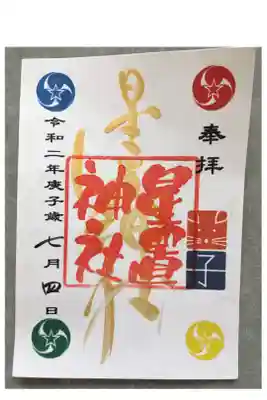 奉拝
子
星置神社
星置
神社
令和二年庚子歳七月四日